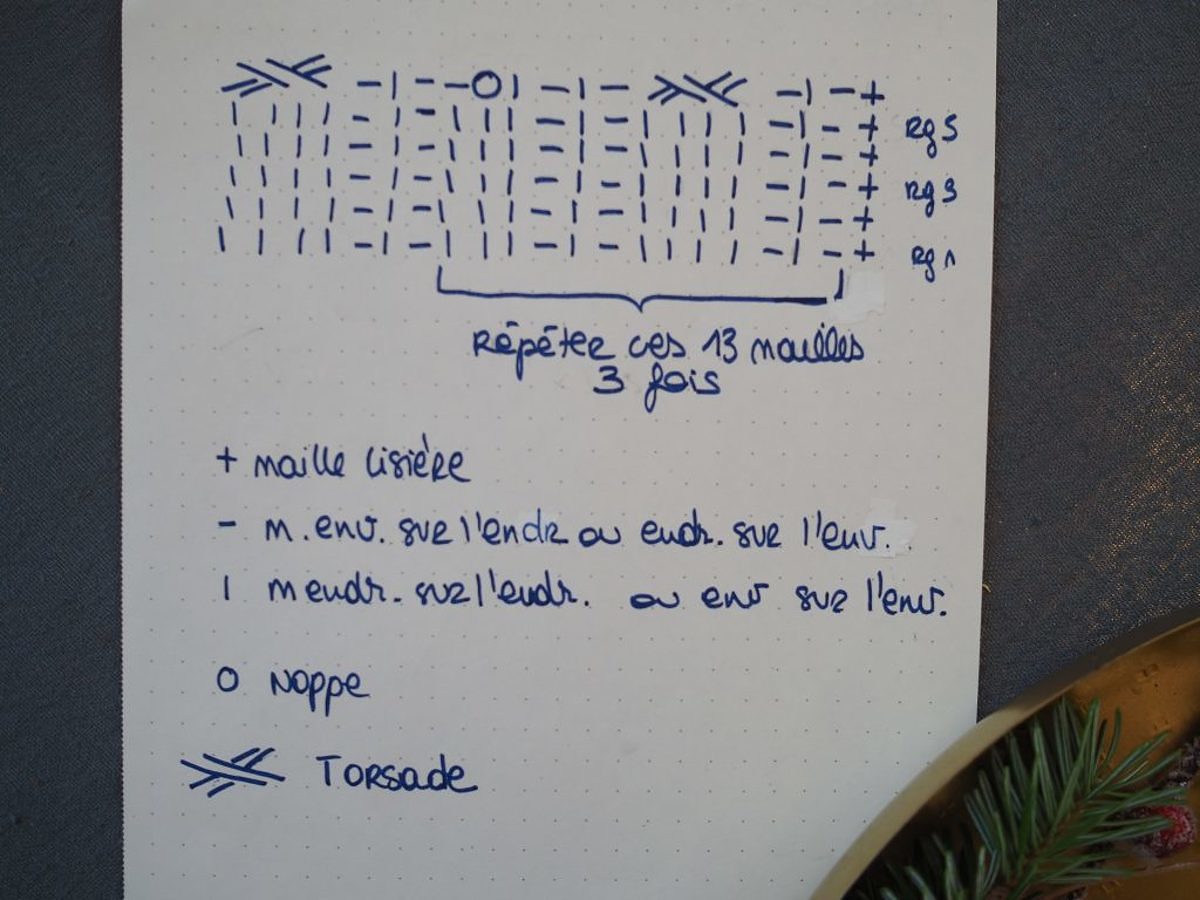 rg 5
rg 3
rg 1
Répéter ces 13 mailles
3 fois
+ maille lisière
- m. env. sur l'endr ou endr. sur l'env.
| m endr. sur l'endr. ou env sur l'env.
O Noppe
Torsade